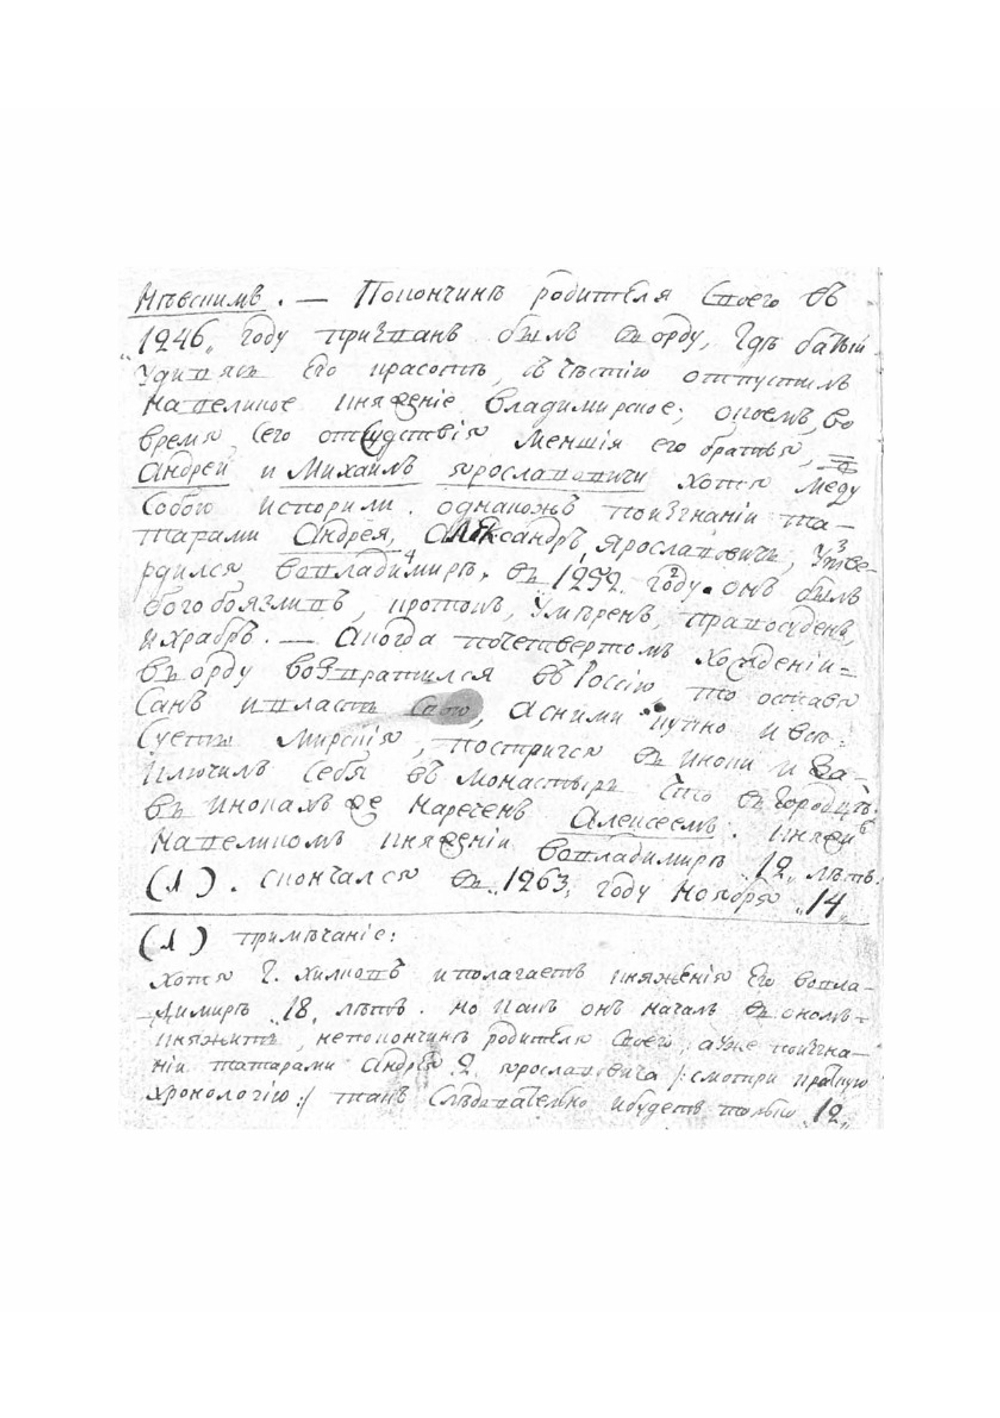 Невскимъ. — Покончинѣ родителя Своего въ
„1246„ Году призванъ былъ въ орду, Гдѣ батый
удивляся Его красотѣ, съ честію отпустилъ
на великое княженіе Владимирское; оноемъ, во
время Сего отсудствія меншія его братья,
Андрей и Михаилъ ярославовичи хотя меду
Собою и спорили. однакожъ по изгнаніи та-
тарами Андрея, Александръ, Ярославовичь, Утве-
рдился, вовладимирѣ, въ 1252. году. онъ былъ
богобоязливъ, кротокъ, Умѣренъ, правосуденъ,
и храбръ. — Акогда почетвертомъ хожденіи=
въ орду возвратился въ Россію, то оставя
Санъ и власть Свою, Асними купно и всю:
Суету мирскія, постригся въ иноки и За-
ключилъ Себя въ монастырь Что въ Городцѣ.
въ инокахъ же нареченъ Алексеемъ. княжи
на великомъ княженіи вовладимирѣ „12„ лѣтъ.
(1). скончался въ „1263„ году ноября „14„
(1) примѣчаніе:
хотя Г. хилковъ и полагаетъ княженія Его вовла-
димирѣ „18„ лѣтъ. но какъ онъ началъ въ ономъ=
княжить, непокончинѣ родителя Своего, а Уже поизгна-
ніи татарами Андрея 2. ярославовича /:смотри краткую
хронологію:/ такъ Слѣдовательно и будетъ только „12„